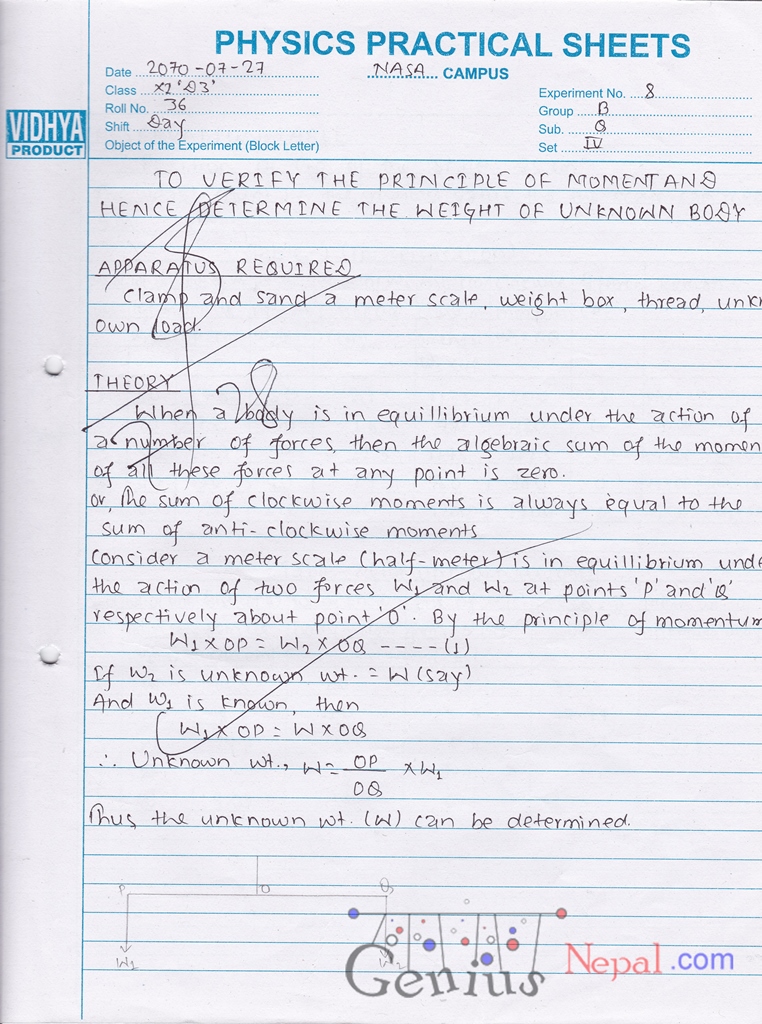 PHYSICS PRACTICAL SHEETS
Date 2070-07-27
NASA CAMPUS
Class X2 'D3'
Experiment No. 8
Roll No. 36
Group B
Shift Day
Sub. Q
Object of the Experiment (Block Letter)
Set IV
VIDHYA
PRODUCT
TO VERIFY THE PRINCIPLE OF MOMENT AND
HENCE DETERMINE THE WEIGHT OF UNKNOWN BODY
APPARATUS REQUIRED
Clamp and sand a meter scale, weight box, thread, unkn
own load.
THEORY
When a body is in equillibrium under the action of
a number of forces, then the algebraic sum of the momen
of all these forces at any point is zero.
or, The sum of clockwise moments is always equal to the
sum of anti-clockwise moments
Consider a meter scale (half-meter) is in equillibrium unde
the action of two forces W1 and W2 at points 'P' and 'Q'
respectively about point 'O'. By the principle of momentum
W1 × OP = W2 × OQ ---- (1)
If W2 is unknown wt. = W (say)
And W1 is known, then
W1 × OP = W × OQ
∴ Unknown wt., W = OP/OQ × W1
Thus the unknown wt. (W) can be determined.
P O Q
W1 W2
Genius Nepal.com